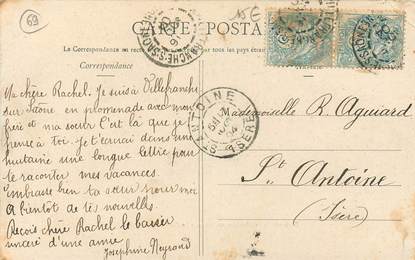 69
CARTE POSTALE
La Correspondance au recto
tous les pays étrangers
Correspondance
Ma chère Rachel. Je suis à Villefranche
sur Saône en promenade avec mon
frère et ma sœur C'est là que je
pense à toi. Je t'écrirai dans une
huitaine une longue lettre pour
te raconter mes vacances.
Embrasse bien ta sœur pour moi
A bientôt de tes nouvelles.
Reçois chère Rachel le baiser
sincère d'une amie
Josephine Neyroud
Mademoiselle R. Aguiard
St Antoine
(Isère)
ST ANTOINE
ISERE